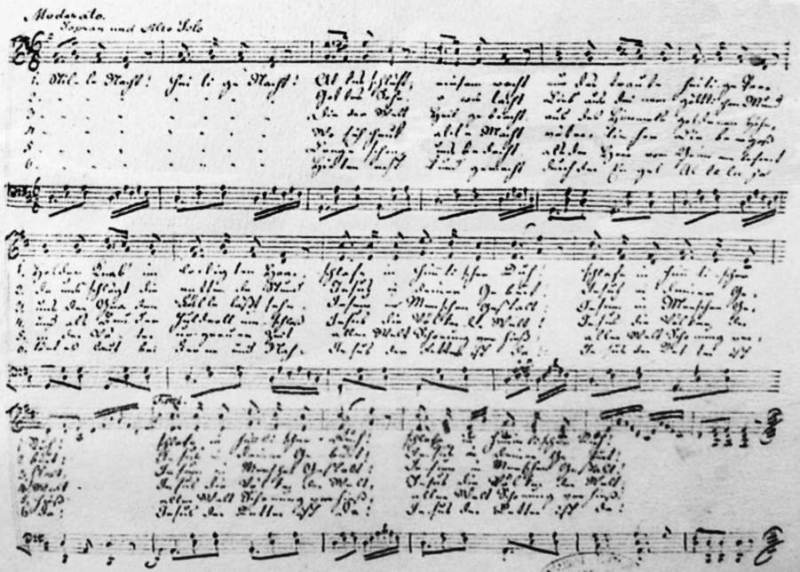 Moderato.
Sopran und Alto Solo
1. Stil-le Nacht! hei-li-ge Nacht! Al-les schläft, einsam wacht nur das traute heilige Paar,
2. Gottes Sohn, o wie lacht Lieb aus deinem göttlichen Mund
3. Die der Welt Heil gebracht, aus des Himmels goldenen Höhn
4. Wo sich heut alle Macht väterlicher Liebe ergoß
5. Lange schon uns bedacht, als der Herr vom Grimme befreit
6. Hirten erst kund gemacht durch der Engel Al-le-lu-ja
1. Holder Knab im lockigten Haar, schlafe in himmlischer Ruh! schlafe in himmlischer
2. da uns schlägt die rettende Stund Jesus in deiner Geburt! Jesus in deiner Ge-
3. uns der Gnaden Fülle läßt sehn, Jesum in Menschen Gestalt! Jesum in Menschen Ge-
4. und als Bruder Huldvoll umschloß Jesus die Völker der Welt! Jesus die Völker der
5. In der Väter urgrauer Zeit aller Welt Schonung verhieß aller Welt Schonung ver-
6. Tönt es laut bei Ferne und Nah Jesus der Retter ist da! Jesus der Retter ist
1. Ruh! schlafe in himmlischer Ruh! schlafe in himmlischer Ruh!
2. burt! Jesus in deiner Geburt! Jesus in deiner Geburt!
3. stalt, Jesum in Menschen Gestalt! Jesum in Menschen Gestalt!
4. Welt Jesus die Völker der Welt! Jesus die Völker der Welt!
5. hieß aller Welt Schonung verhieß! aller Welt Schonung verhieß!
6. da! Jesus der Retter ist da! Jesus der Retter ist da!